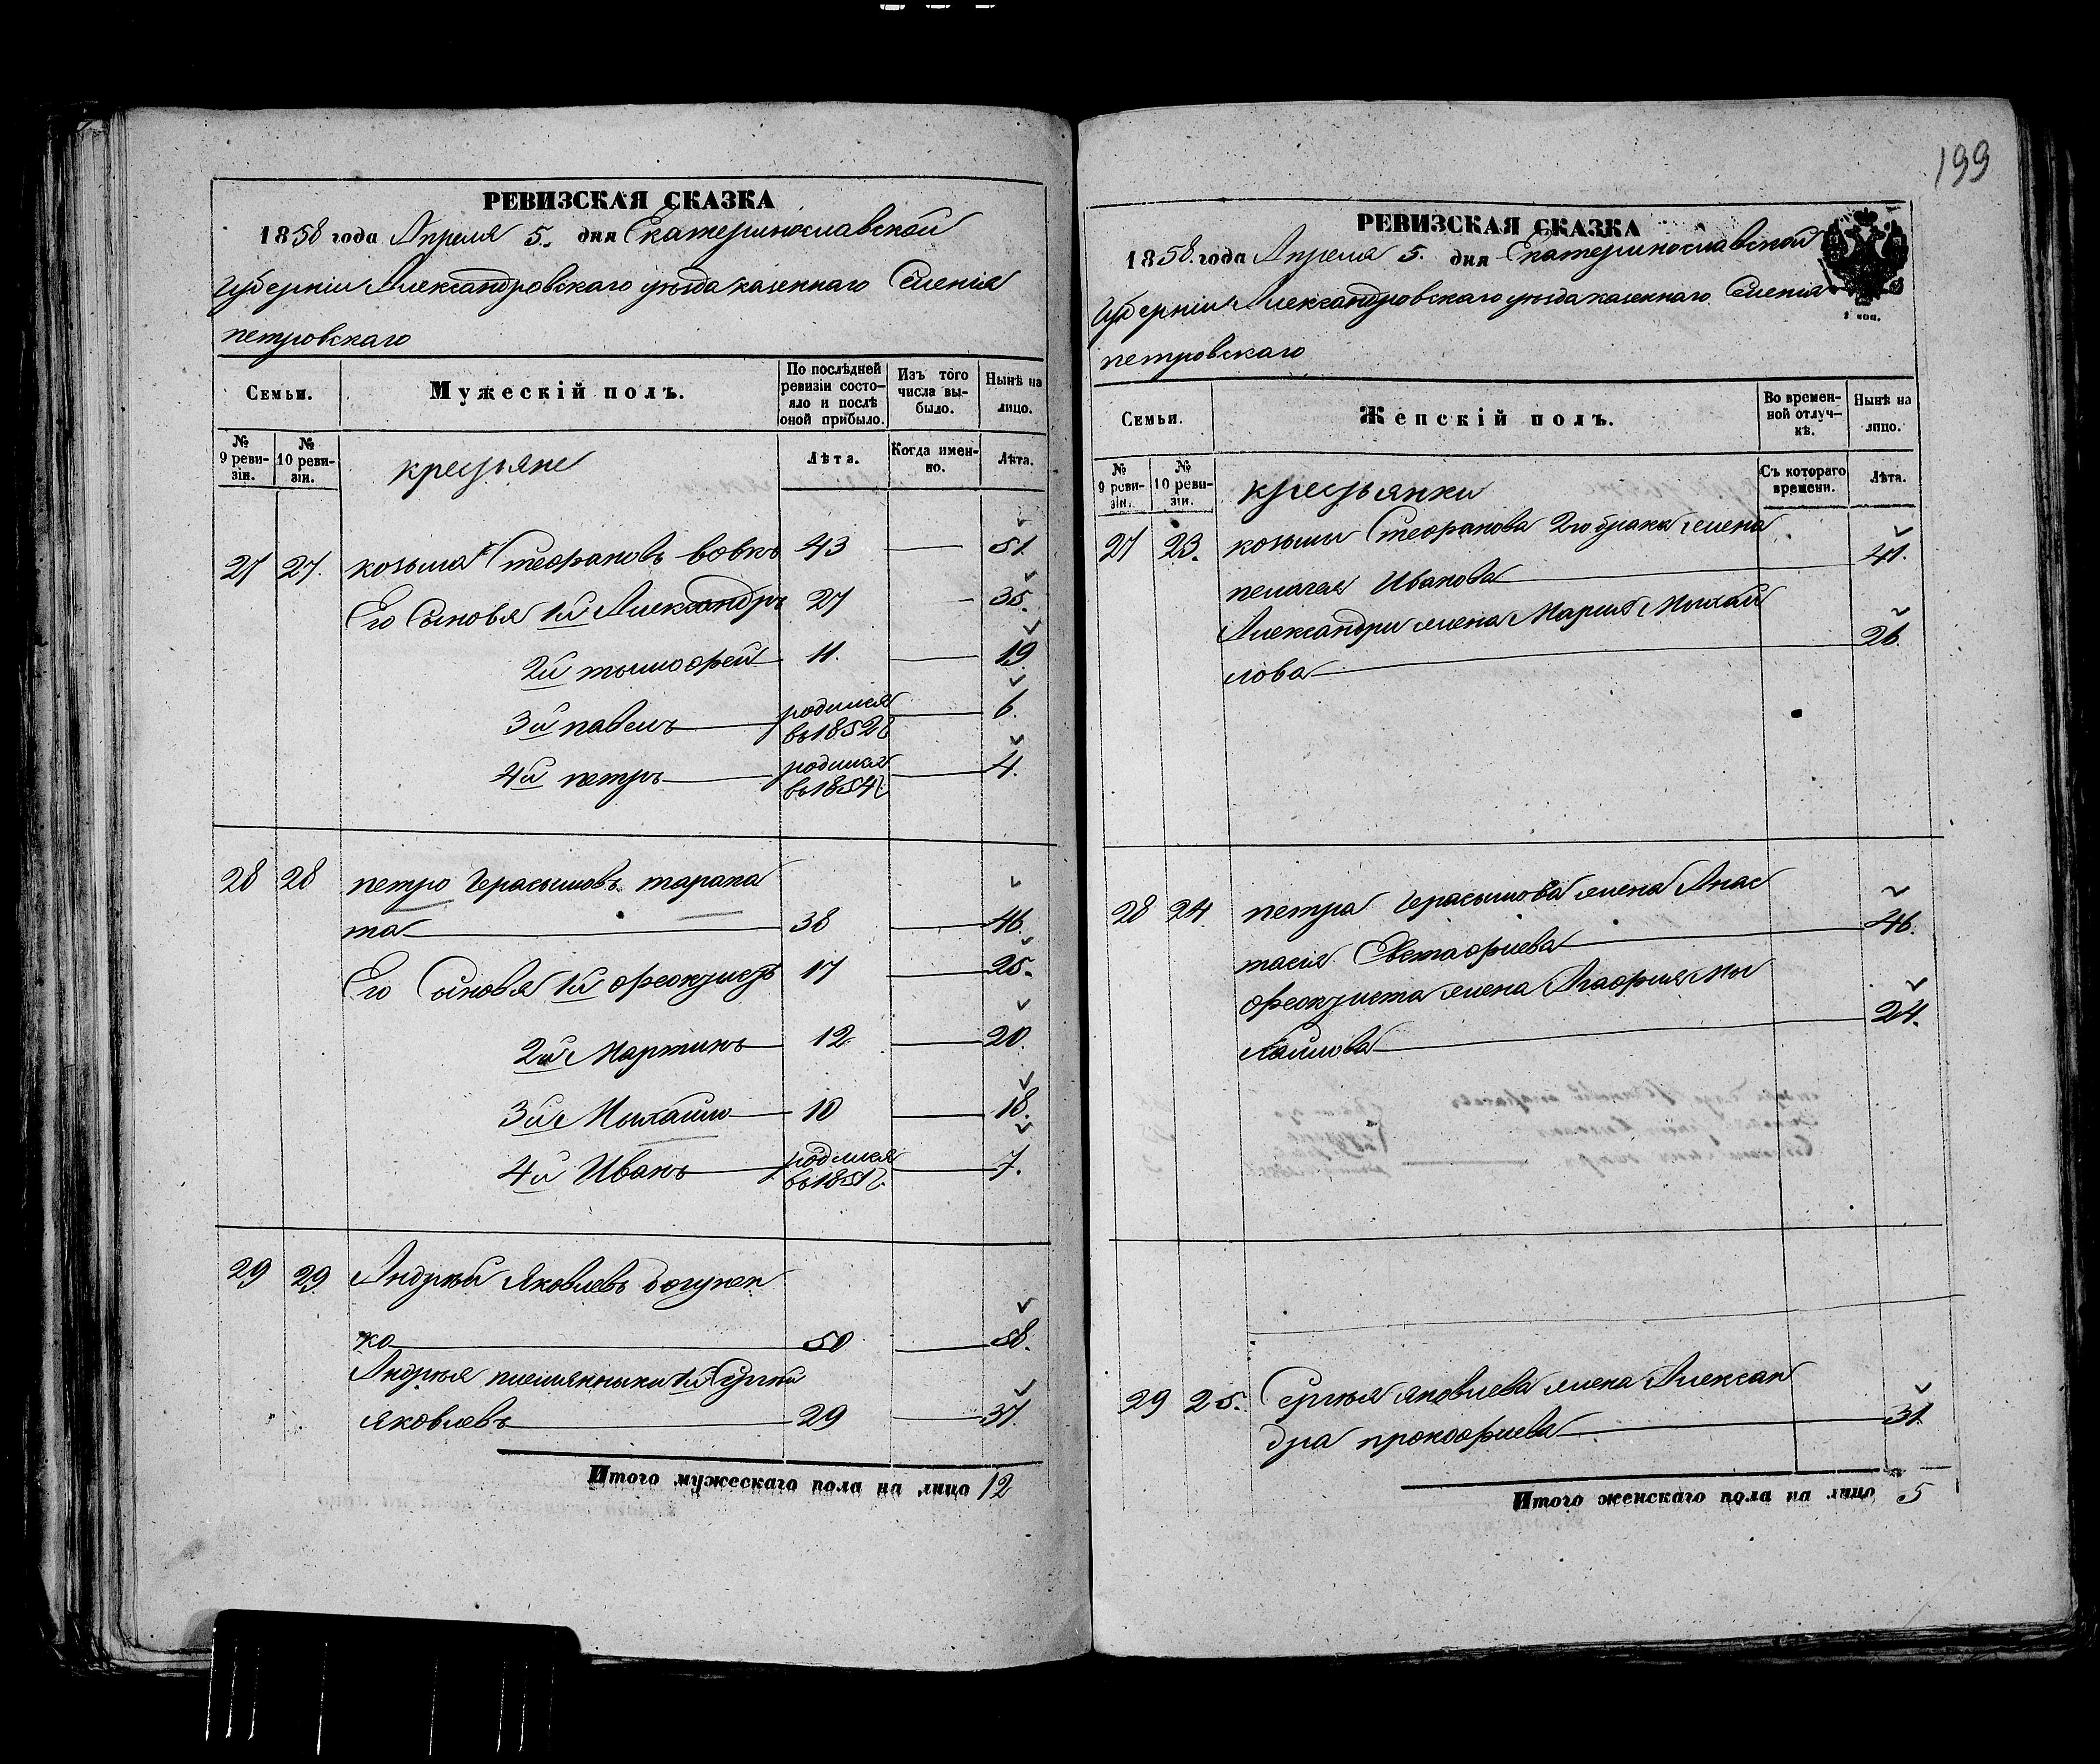 199
РЕВИЗСКАЯ СКАЗКА
1858 года Апреля 5. дня Екатеринославской
Губерніи Александровскаго уѣзда казеннаго Селенія
петровскаго
Семьи.
Мужескій полъ.
По послѣдней ревизіи состо-
яло и послѣ оной прибыло.
Изъ того числа вы-
было.
Нынѣ на лицо.
№ 9 реви-
зіи.
№ 10 реви-
зіи.
крестьяне
Лѣта.
Когда имен-
но.
Лѣта.
27 27. козьма Стефановъ вовкъ 43 51.
Его Сыновья 1й Александръ 27 35.
2й тымофей 11. 19
3й павелъ родился в 1852 г 6.
4й петръ родился в 1854 г. 4.
28 28 петро Герасымовъ тарапа
та 38 46.
Его Сыновья 1й феоктистъ 17 25.
2й Мартинъ 12 20.
3й Михайло 10 18.
4й Иванъ родился в 1851 г. 7.
29 29. Андрѣй Яковлевъ богунен
ко 50 58.
Андрѣя племянныки 1й Сергѣй
яковлевъ 29 37.
Итого мужескаго пола на лицо 12
РЕВИЗСКАЯ СКАЗКА
1858. года Апреля 5. дня Екатеринославской
Губерніи Александровскаго уѣзда казеннаго Селенія
петровскаго
Семьи.
Женскій полъ.
Во времен-
ной отлуч-
кѣ.
Нынѣ на лицо.
№ 9 реви-
зіи.
№ 10 реви-
зіи.
крестьянки
Съ котораго времени.
Лѣта.
27 23. козьмы Стефанова 2го брака жена
пелагея Иванова 41.
Александры жена Марія Михай
лова 26.
28 24. петра Герасымова жена Анас
тасія Евстафиева 46.
феоктиста жена Агафия Ми
хайлова 24.
29 25. Сергѣя яковлева жена Алексан
дра прокофиева 31
Итого женскаго пола на лицо 5